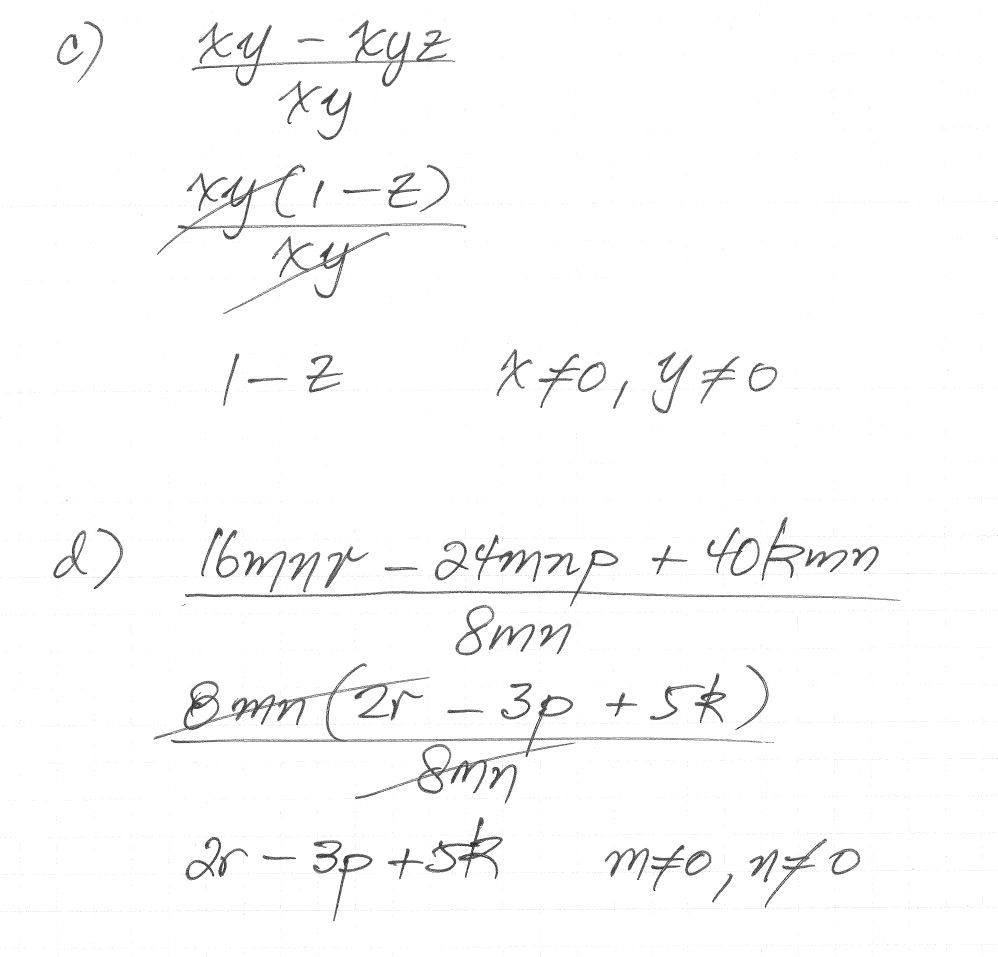 c) xy - xyz
xy
xy(1 - z)
xy
1 - z x ≠ 0, y ≠ 0
d) 16mnr - 24mnp + 40kmn
8mn
8mn(2r - 3p + 5k)
8mn
2r - 3p + 5k m ≠ 0, n ≠ 0